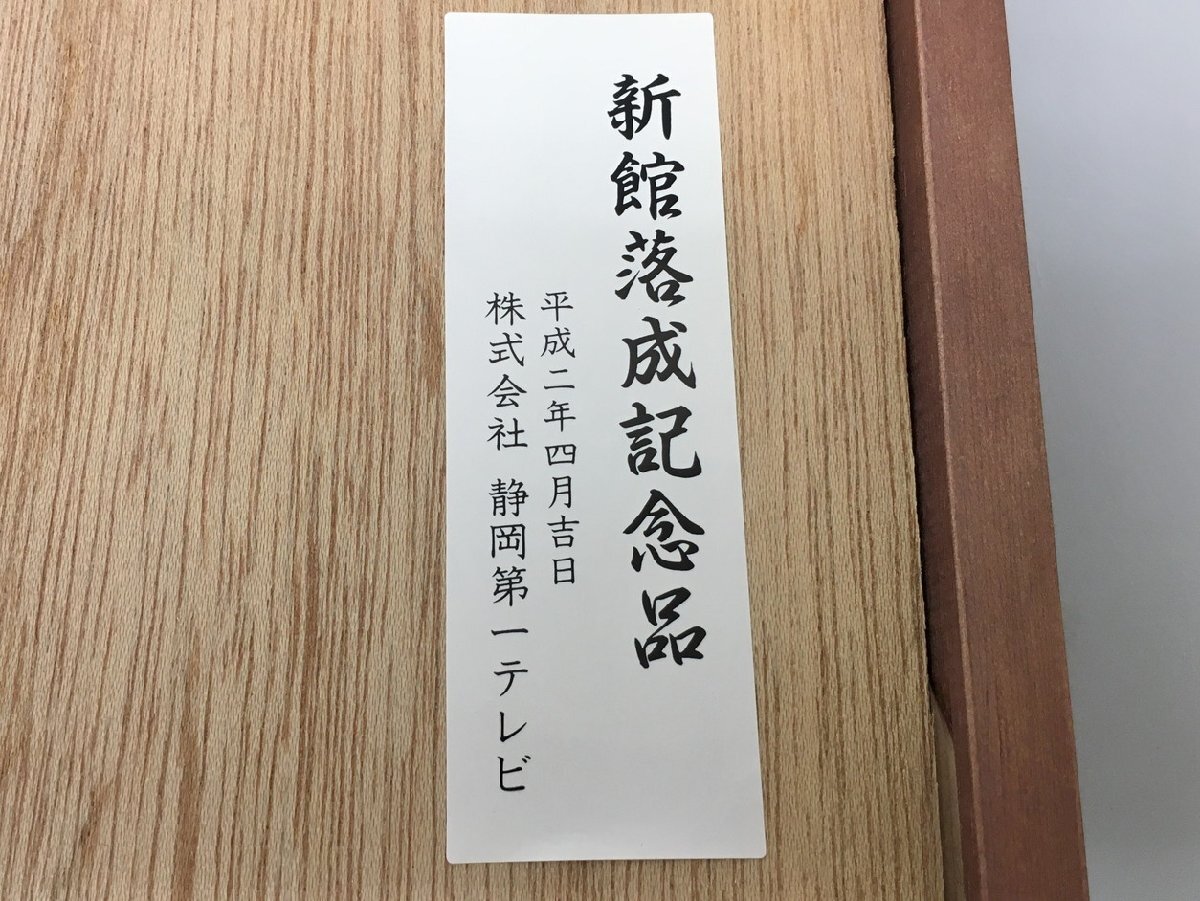 新館落成記念品
平成二年四月吉日
株式会社 静岡第一テレビ